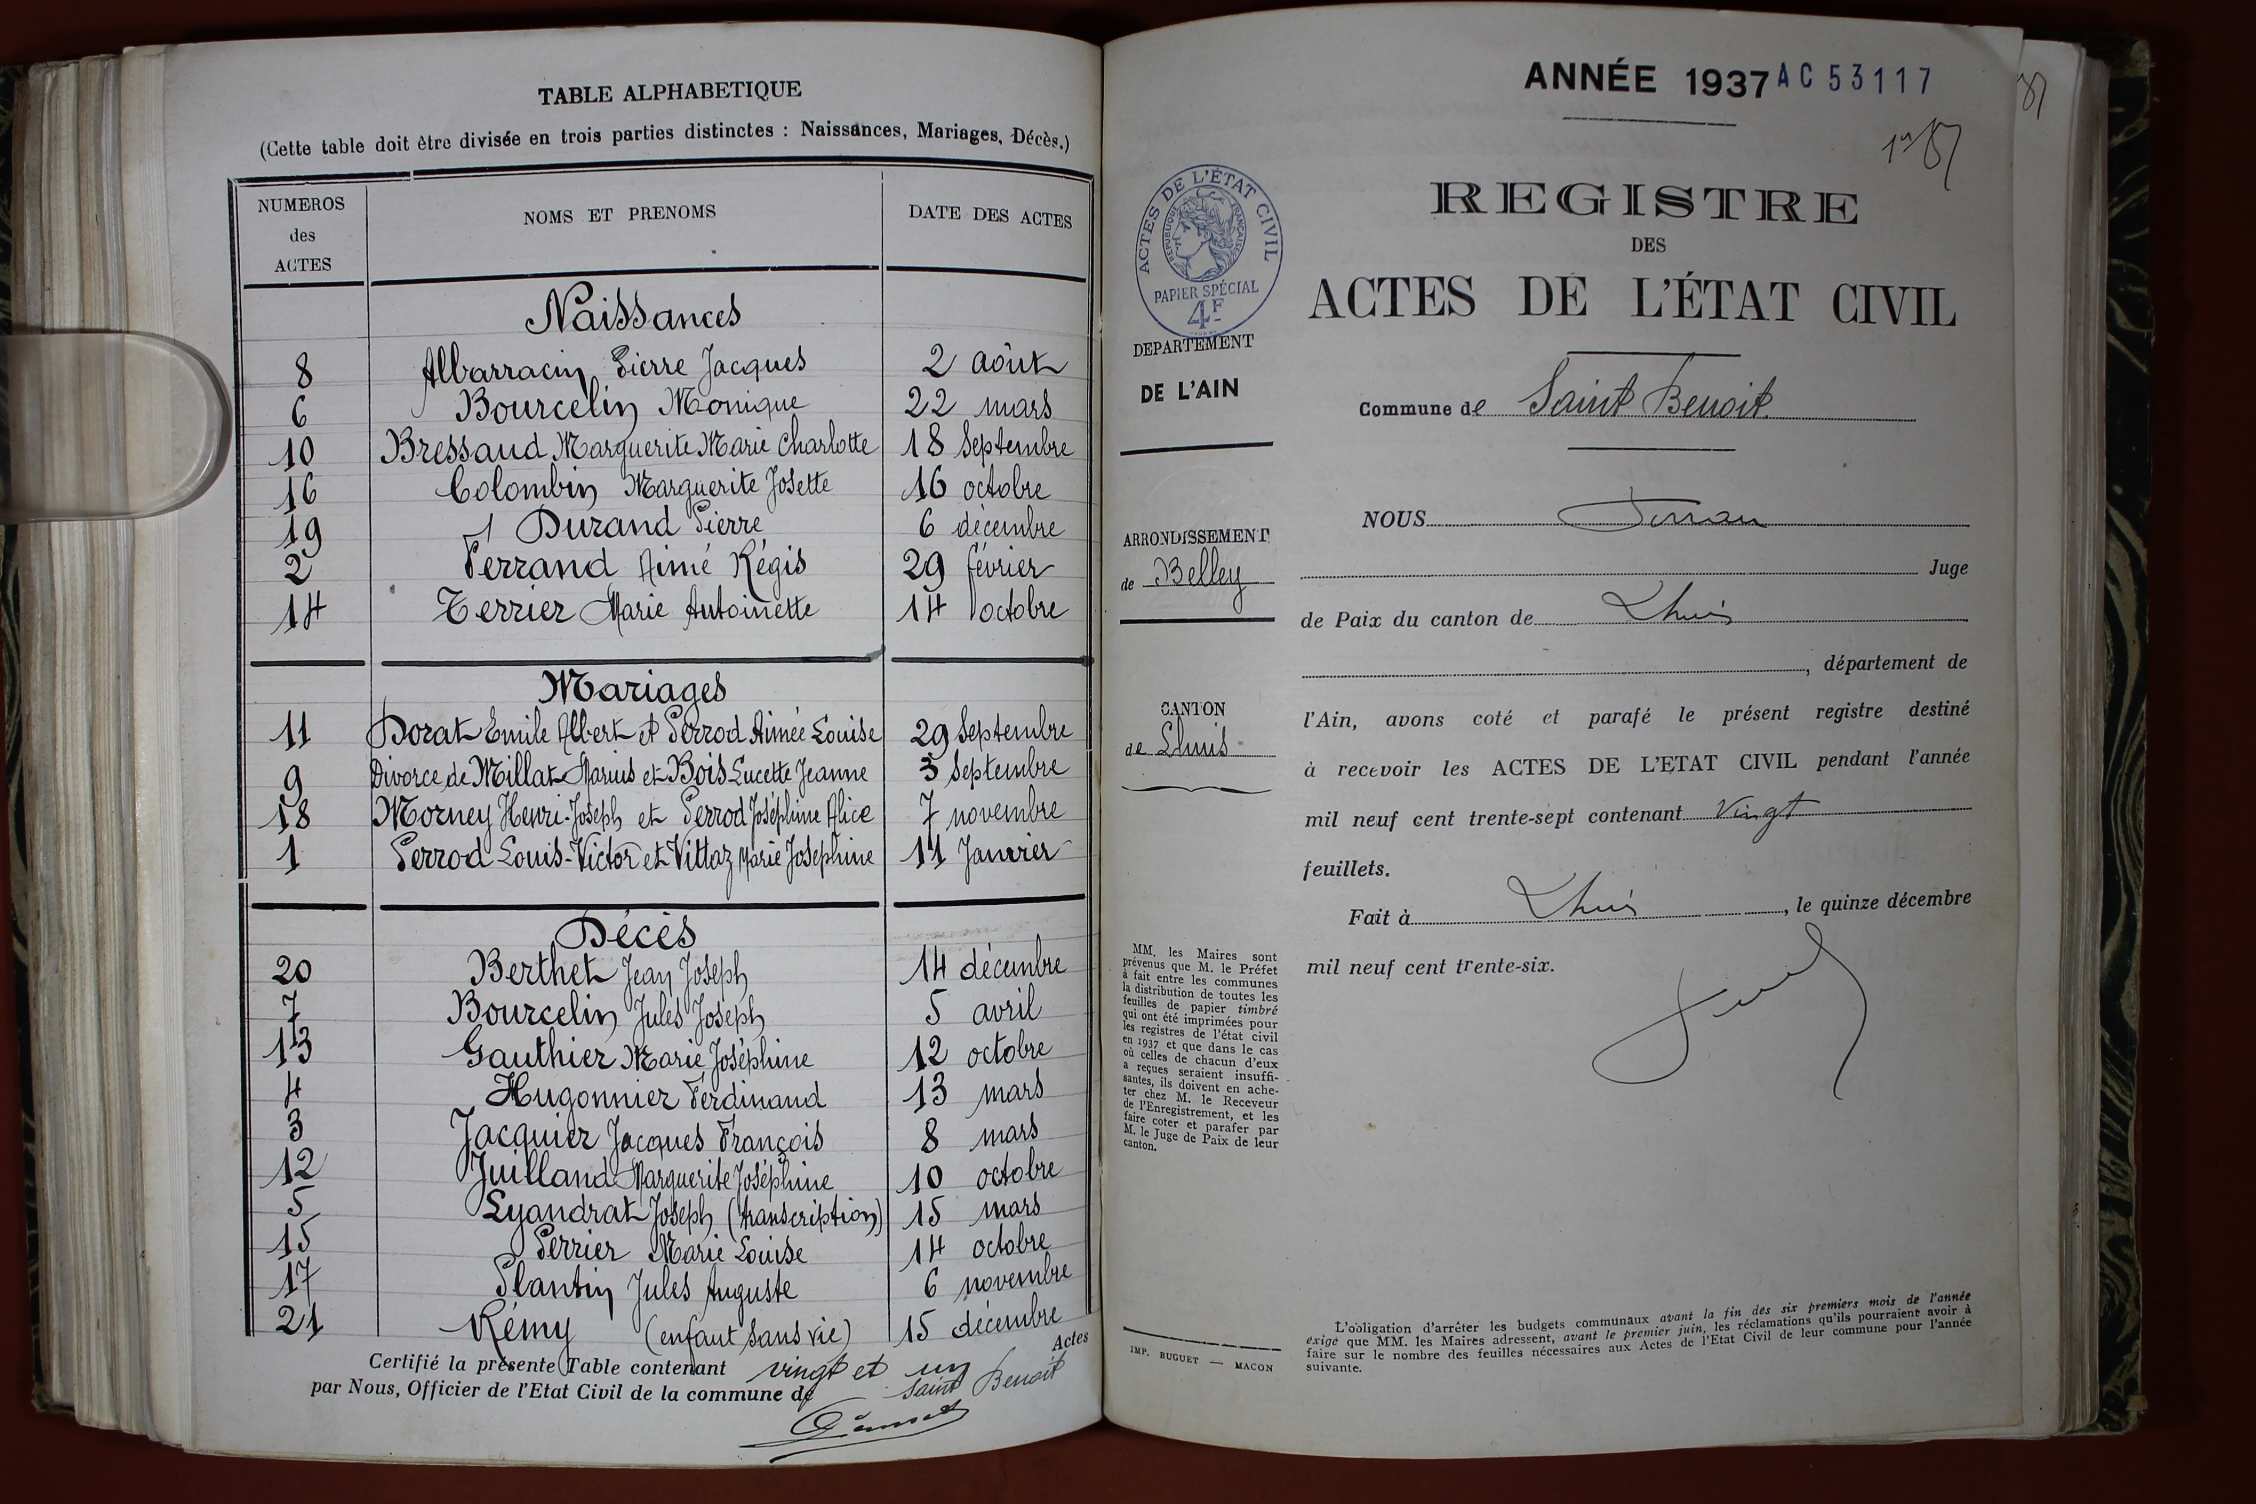 TABLE ALPHABETIQUE
(Cette table doit être divisée en trois parties distinctes : Naissances, Mariages, Décès.)
NUMEROS des ACTES
NOMS ET PRENOMS
DATE DES ACTES
Naissances
8 Albarracin Pierre Jacques 2 août
6 Bourcelin Monique 22 mars
10 Bressaud Marguerite Marie Charlotte 18 Septembre
16 Colombin Marguerite Josette 16 octobre
19 Durand Pierre 6 décembre
2 Ferrand Aimé Régis 29 février
14 Terrier Marie Antoinette 14 octobre
Mariages
11 Dorat Emile Albert et Perrod Aimée Louise 29 Septembre
9 Divorce de Millat Marius et Bois Lucette Jeanne 3 Septembre
18 Morney Henri-Joseph et Perrod Joséphine Alice 7 novembre
1 Perrod Louis-Victor et Vittaz Marie Joséphine 11 Janvier
Décès
20 Berthet Jean Joseph 14 décembre
7 Bourcelin Jules Joseph 5 avril
13 Gauthier Marie Joséphine 12 octobre
4 Hugonnier Ferdinand 13 mars
3 Jacquier Jacques François 8 mars
12 Juilland Marguerite Joséphine 10 octobre
5 Lyandrat Joseph (transcription) 15 mars
15 Perrier Marie Louise 14 octobre
17 Plantin Jules Auguste 6 novembre
21 Rémy (enfant sans vie) 15 décembre
Certifié la présente Table contenant vingt et un Actes
par Nous, Officier de l'Etat Civil de la commune de Saint Benoit
ANNÉE 1937 AC 53117
REGISTRE
DES
ACTES DE L'ÉTAT CIVIL
ACTES DE L'ÉTAT CIVIL
RÉPUBLIQUE FRANÇAISE
PAPIER SPÉCIAL
4F
DEPARTEMENT
DE L'AIN
ARRONDISSEMENT
de Belley
CANTON
de Lhuis
MM. les Maires sont
prévenus que M. le Préfet
a fait entre les communes
la distribution de toutes les
feuilles de papier timbré
qui ont été imprimées pour
les registres de l'état civil
en 1937 et que dans le cas
où celles de chacun d'eux
a reçues seraient insuffi-
santes, ils doivent en ache-
ter chez M. le Receveur
de l'Enregistrement, et les
faire coter et parafer par
M. le Juge de Paix de leur
canton.
IMP. BUGUET — MACON
Commune de Saint Benoit
NOUS
Juge
de Paix du canton de Lhuis
, département de
l'Ain, avons coté et parafé le présent registre destiné
à recevoir les ACTES DE L'ETAT CIVIL pendant l'année
mil neuf cent trente-sept contenant Vingt
feuillets.
Fait à Lhuis, le quinze décembre
mil neuf cent trente-six.
L'obligation d'arrêter les budgets communaux avant la fin des six premiers mois de l'année
exige que MM. les Maires adressent, avant le premier juin, les réclamations qu'ils pourraient avoir à
faire sur le nombre des feuilles nécessaires aux Actes de l'Etat Civil de leur commune pour l'année
suivante.